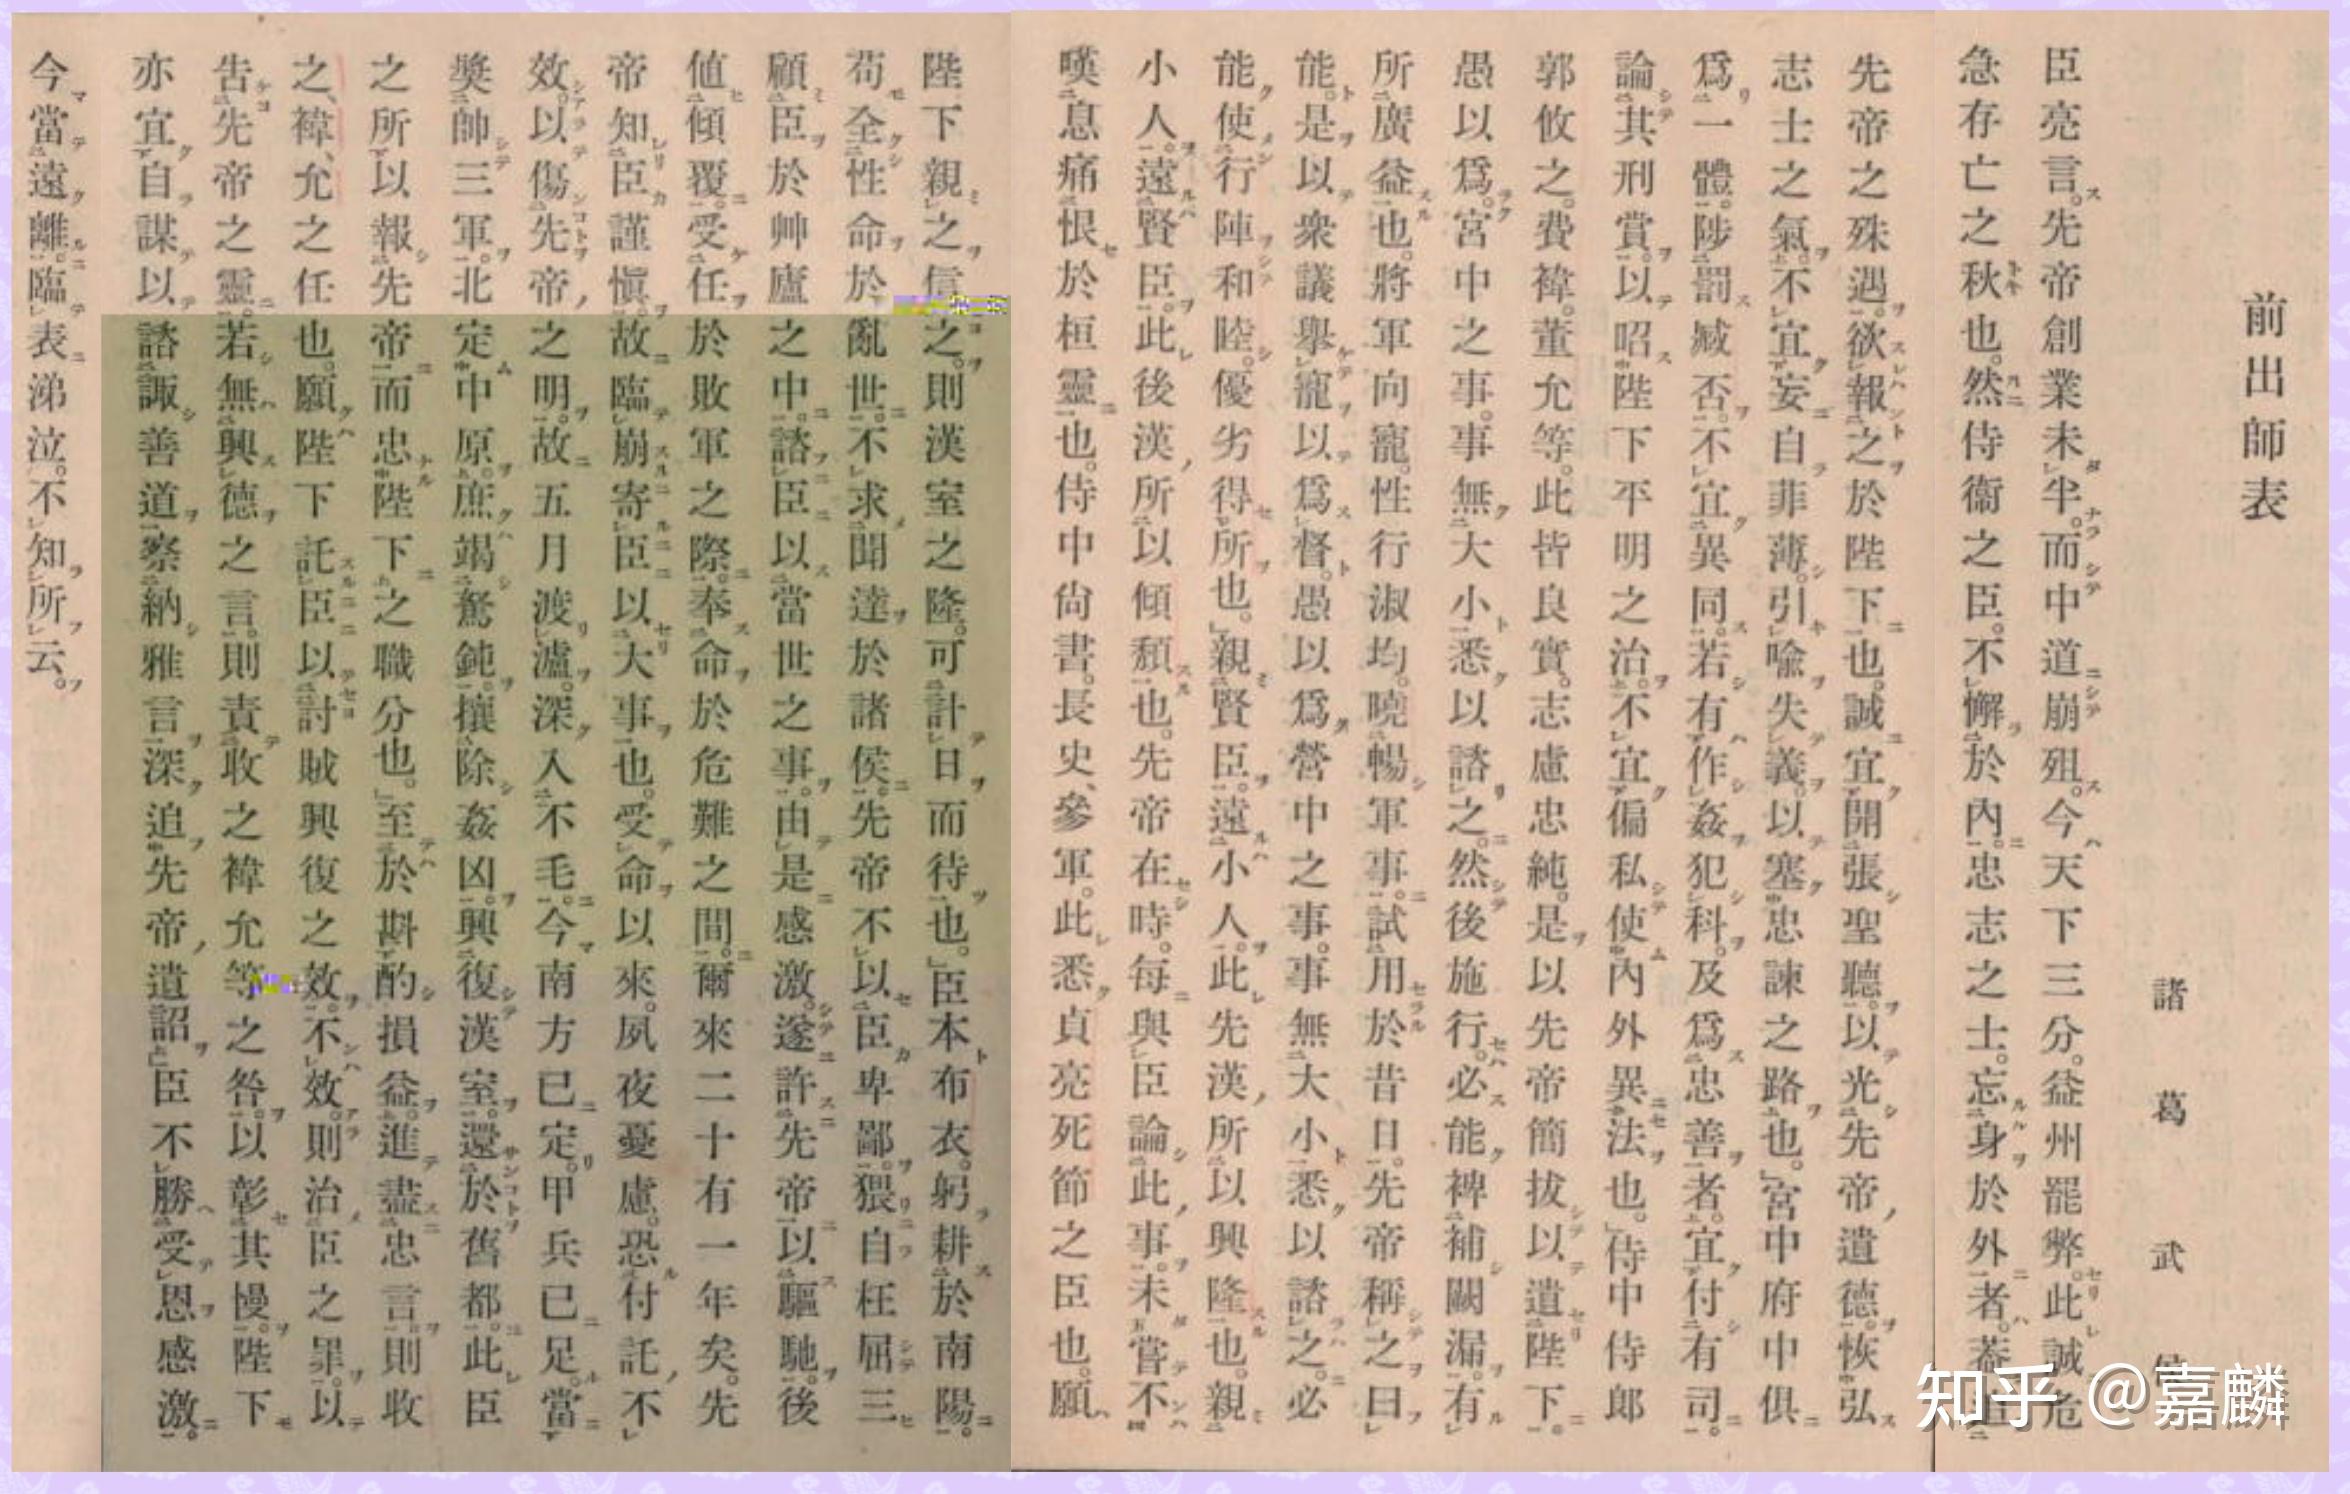 前出師表
諸葛武侯
臣亮言。先帝創業未半。而中道崩殂。今天下三分。益州罷弊。此誠危
急存亡之秋也。然侍衞之臣。不懈於內。忠志之士。忘身於外者。葢追
先帝之殊遇。欲報之於陛下也。誠宜開張聖聽。以光先帝遺德。恢弘
志士之氣。不宜妄自菲薄。引喩失義。以塞忠諫之路也。」宮中府中俱
爲一體。陟罰臧否。不宜異同。若有作姦犯科。及爲忠善者。宜付有司。
論其刑賞。以昭陛下平明之治。不宜偏私使內外異法也。」侍中侍郎
郭攸之。費褘。董允等。此皆良實。志慮忠純。是以先帝簡拔以遺陛下。
愚以爲。宮中之事。事無大小。悉以諮之。然後施行。必能裨補闕漏。有
所廣益也。將軍向寵。性行淑均。曉暢軍事。試用於昔日。先帝稱之曰
能。是以衆議擧寵以爲督。愚以爲營中之事。事無大小。悉以諮之。必
能使行陣和睦。優劣得所也。」親賢臣。遠小人。此先漢所以興隆也。親
小人。遠賢臣。此後漢所以傾頹也。先帝在時。每與臣論此事。未嘗不
嘆息痛恨於桓靈也。侍中尙書。長史、參軍。此悉貞亮死節之臣也。願
陛下親之信之。則漢室之隆。可計日而待也。」臣本布衣。躬耕於南陽。
苟全性命於亂世。不求聞達於諸侯。先帝不以臣卑鄙。猥自枉屈三
顧臣於艸廬之中。諮臣以當世之事。由是感激。遂許先帝以驅馳。後
値傾覆。受任於敗軍之際。奉命於危難之間。爾來二十有一年矣。先
帝知臣謹愼。故臨崩寄臣以大事也。受命以來。夙夜憂慮。恐付託不
效。以傷先帝之明。故五月渡瀘。深入不毛。今南方已定。甲兵已足。當
奬帥三軍。北定中原。庶竭駑鈍。攘除姦凶。興復漢室。還於舊都。此臣
之所以報先帝而忠陛下之職分也。」至於斟酌損益。進盡忠言。則收
之、褘、允之任也。願陛下託臣以討賊興復之效。不效。則治臣之罪。以
告先帝之靈。若無興德之言。則責收之褘允等之咎。以彰其慢。陛下
亦宜自謀以諮諏善道。察納雅言。深追先帝遺詔。臣不勝受恩感激。
今當遠離。臨表涕泣。不知所云。
知乎 @嘉麟